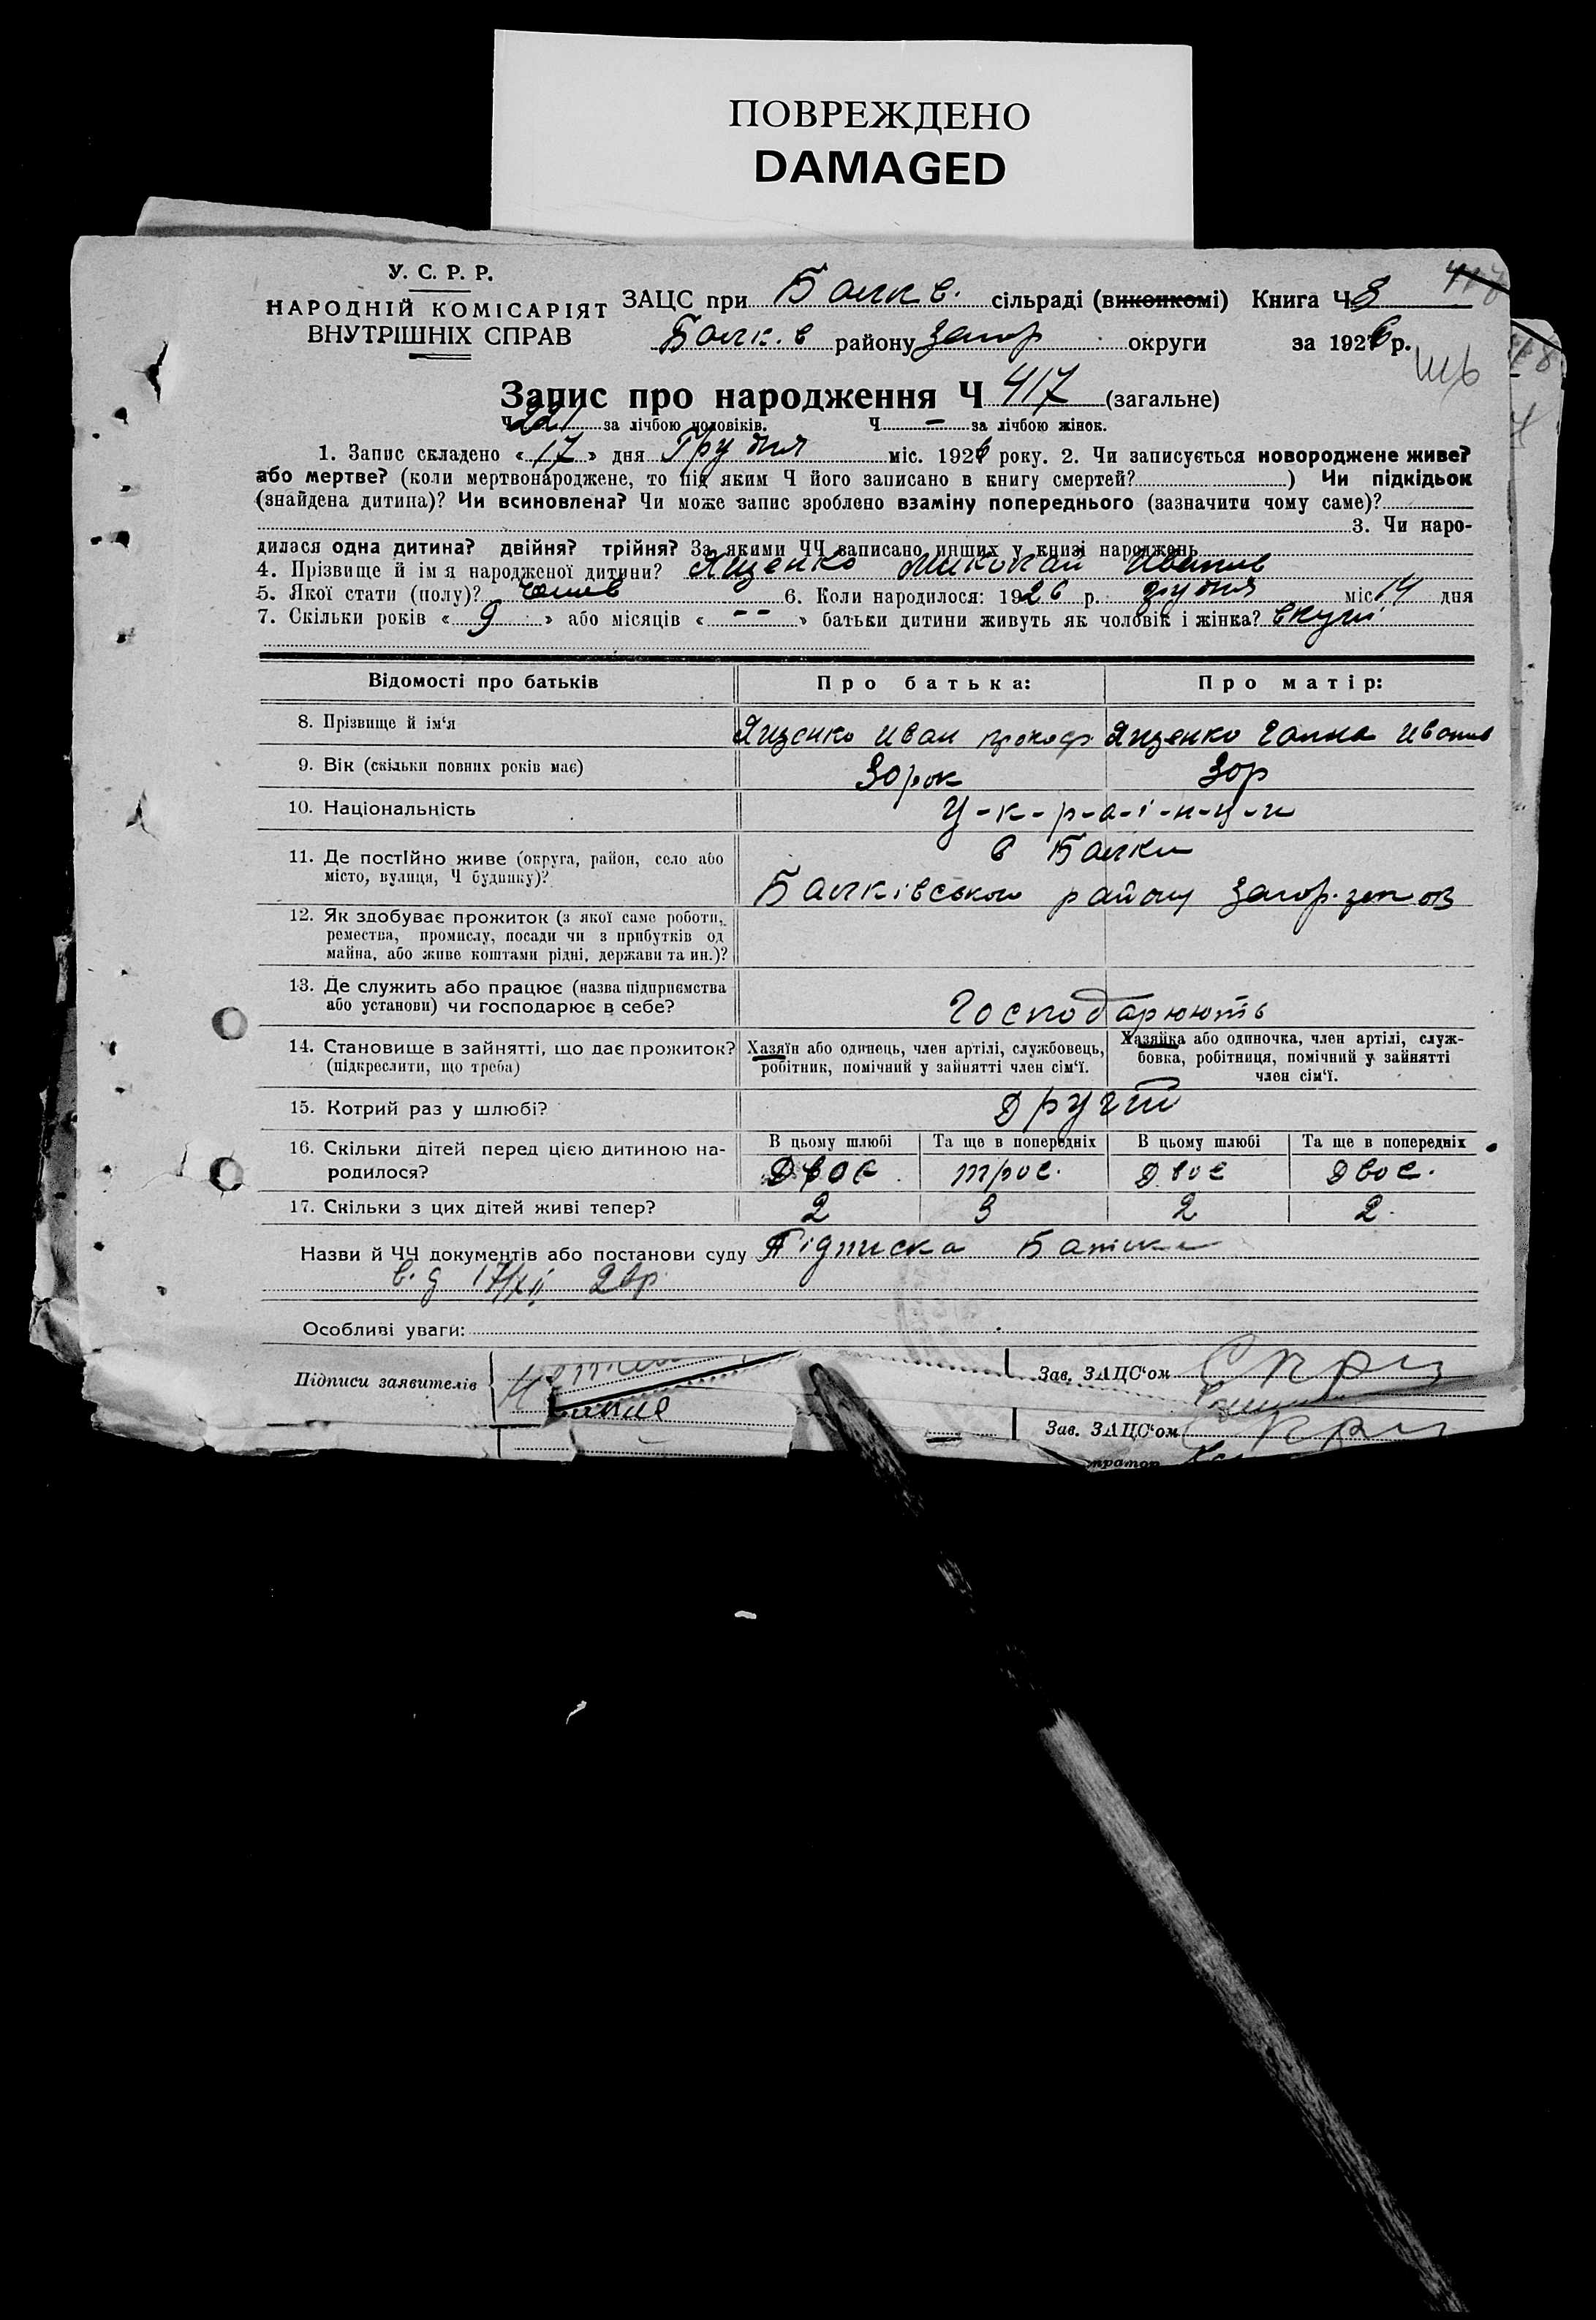 ПОВРЕЖДЕНО
DAMAGED
У. С. Р. Р.
НАРОДНІЙ КОМІСАРІЯТ
ВНУТРІШНІХ СПРАВ
ЗАЦС при Балк в. сільраді (виконкомі) Книга Ч 8
Балк. в району Запор округи за 1926 р.
Запис про народження Ч 417 (загальне)
Ч 221 за лічбою чоловіків. Ч — за лічбою жінок.
1. Запис складено « 17 » дня Грудня міс. 1926 року. 2. Чи записується новороджене живе?
або мертве? (коли мертвонароджене, то під яким Ч його записано в книгу смертей? ) Чи підкідьок
(знайдена дитина)? Чи всиновлена? Чи може запис зроблено взаміну попереднього (зазначити чому саме)?
3. Чи наро-
дилася одна дитина? двійня? трійня? За якими ЧЧ записано инших у книзі народжень
4. Прізвище й ім я народженої дитини? Ященко Миколай Иванов
5. Якої стати (полу)? 6. Коли народилося: 1926 р. грудня міс 14 дня
7. Скільки років « 9 » або місяців « -- » батьки дитини живуть як чоловік і жінка? вкупі
Відомості про батьків
Про батька:
Про матір:
8. Прізвище й ім'я
Ященко Иван прокоф
Ященко Ганна Иванов
9. Вік (скільки повних років має)
30 рок
30 р
10. Національність
У-к-р-а-ї-н-ц-и
11. Де постійно живе (округа, район, село або
місто, вулиця, Ч будинку)?
в Балки
Балківського району Запор.
12. Як здобуває прожиток (з якої саме роботи,
ремества, промислу, посади чи з прибутків од
майна, або живе коштами рідні, держави та ин.)?
13. Де служить або працює (назва підприємства
або установи) чи господарює в себе?
Господарюють
14. Становище в зайнятті, що дає прожиток?
(підкреслити, що треба)
Хазяїн або одинець, член артілі, службовець,
робітник, помічний у зайнятті член сім'ї.
Хазяйка або одиночка, член артілі, служ-
бовка, робітниця, помічний у зайнятті
член сім'ї.
15. Котрий раз у шлюбі?
Другий
16. Скільки дітей перед цією дитиною на-
родилося?
В цьому шлюбі
Та ще в попередніх
В цьому шлюбі
Та ще в попередніх
Двоє
троє.
Двоє
Двоє.
17. Скільки з цих дітей живі тепер?
2
3
2
2.
Назви й ЧЧ документів або постанови суду Підписка Батька
17/XII 26р.
Особливі уваги:
Підписи заявителів
Зав. ЗАЦС'ом
Зав. ЗАЦС'ом